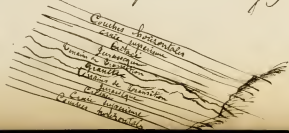 Couches horizontales
Craie supérieure
Jurassique
Terrain de transition
Granites
Terrain de transition
Jurassique
Craie
Craie supérieure
Couches horizontales